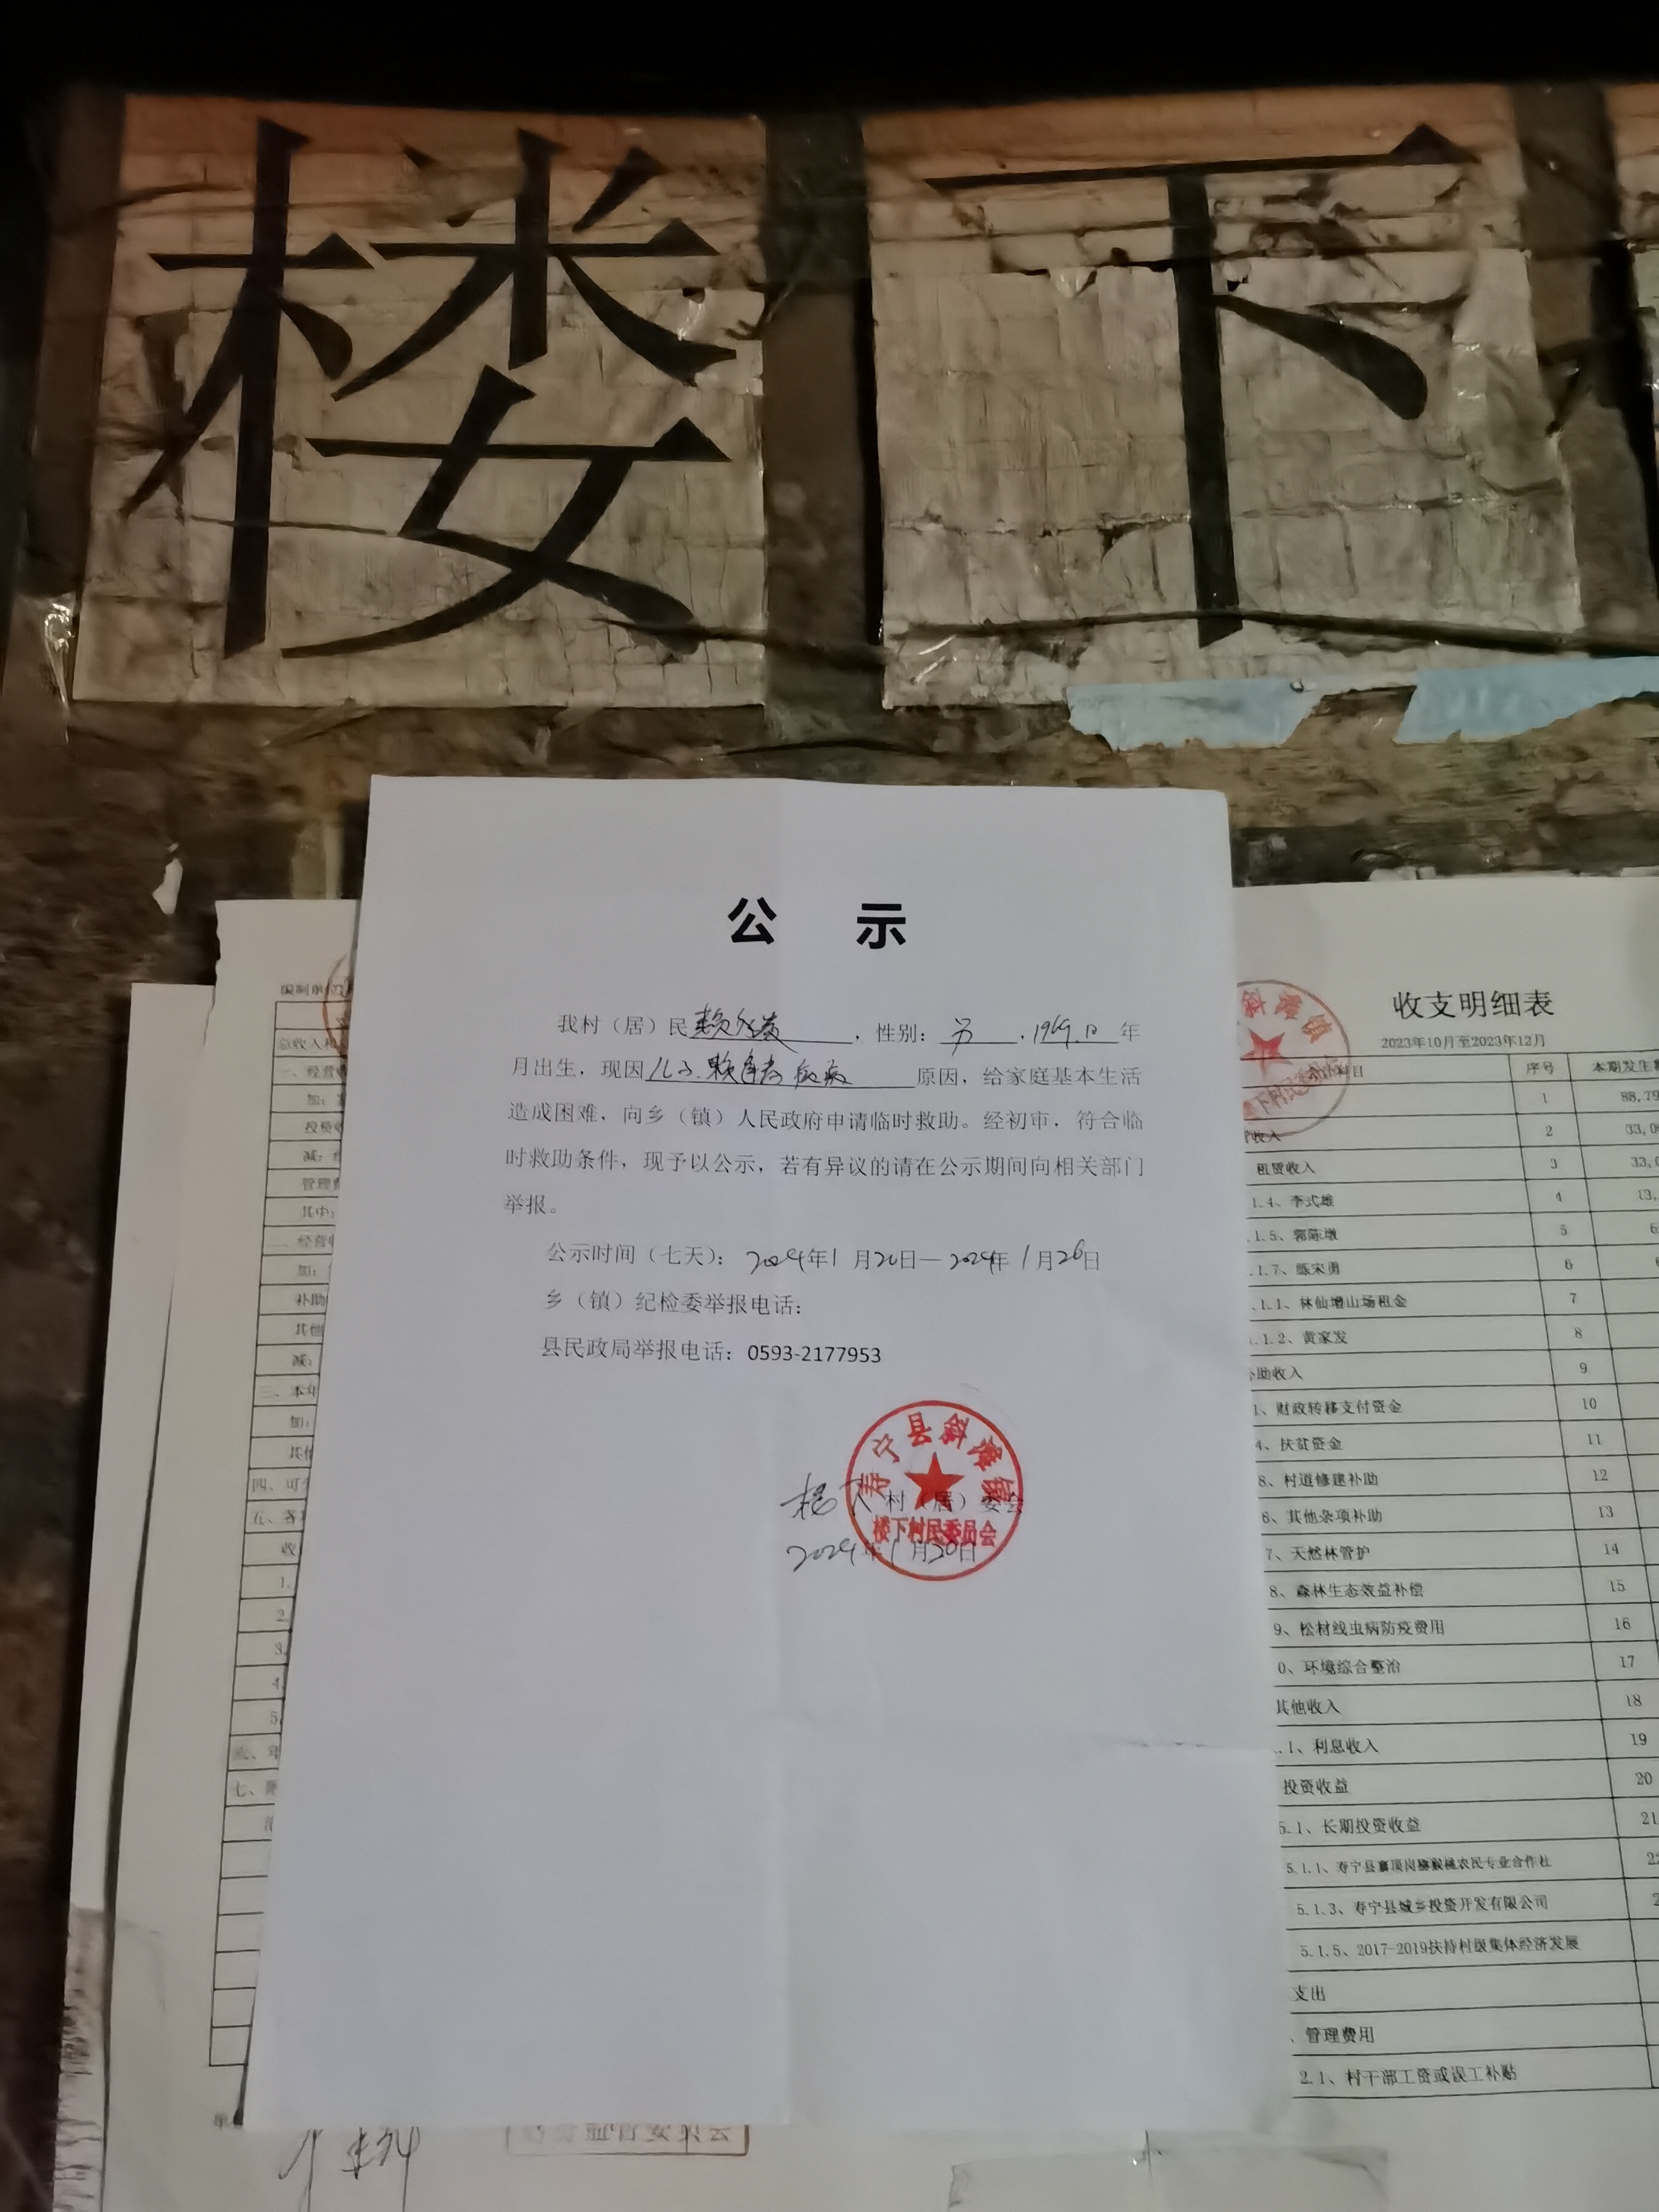 楼 下
公 示
我村（居）民赖，性别：男，1969.10年
月出生，现因儿子.赖 疾病原因，给家庭基本生活
造成困难，向乡（镇）人民政府申请临时救助。经初市，符合临
时救助条件，现予以公示，若有异议的请在公示期间向相关部门
举报。
公示时间（七天）：2024年1月20日—2024年1月26日
乡（镇）纪检委举报电话：
县民政局举报电话：0593-2177953
寿宁县斜滩镇
楼下村（居）委会
楼下村民委员会
2024年1月20日
编制单位
总收入
一、经营
加：
投资收
减：
管理费
其中：
二、经营
加：
补助
其他
减：
三、本年
加：
其他
四、可分
五、各
收
1.
2.
3.
4.
5.
六、年
七、
斜滩镇
收支明细表
2023年10月至2023年12月
科目 序号 本期发生
1 88,79
收入 2 33,0
租赁收入 3 33,0
1.4、李式雄 4 13,
.1.5、郭陈墩 5 6
.1.7、练宋勇 6
.1.1、林仙增山场租金 7
.1.2、黄家发 8
补助收入 9
1、财政转移支付资金 10
4、扶贫资金 11
8、村道修建补助 12
6、其他杂项补助 13
7、天然林管护 14
8、森林生态效益补偿 15
9、松材线虫病防疫费用 16
0、环境综合整治 17
其他收入 18
.1、利息收入 19
投资收益 20
5.1、长期投资收益 21
5.1.1、寿宁县 顶岗猕猴桃农民专业合作社 22
5.1.3、寿宁县城乡投资开发有限公司 2
5.1.5、2017-2019扶持村级集体经济发展
支出
、管理费用
2.1、村干部工资或误工补贴
监督委员会